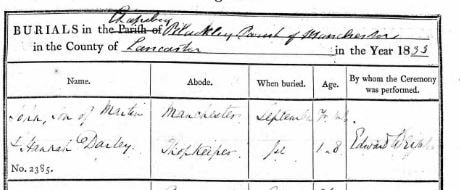 Chapelry
BURIALS in the Parish of Blackley Parish of Manchester
in the County of Lancaster in the Year 1835
Name. Abode. When buried. Age. By whom the Ceremony was performed.
John, son of Martin Manchester September
& Hannah Darley. Shopkeeper. 1.8 Edward
No. 2385.